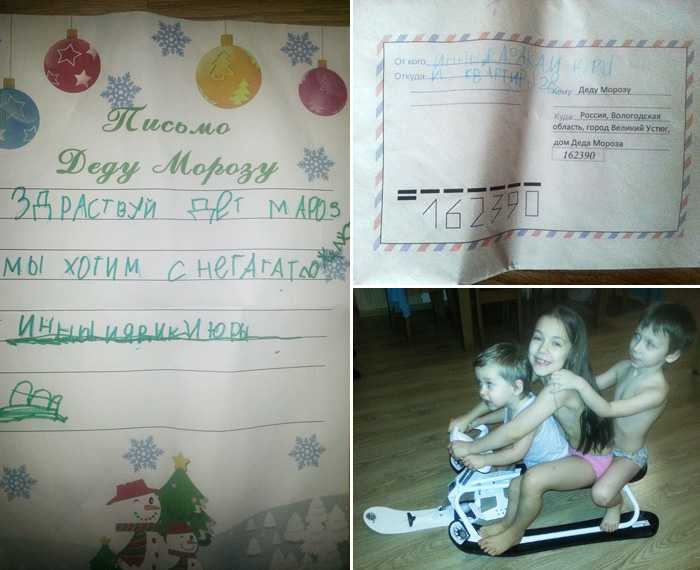 Письмо
Деду Морозу
ЗДРАСТВУЙ ДЕТ МАРОЗ
МЫ ХОТИМ СНЕГАГАТ
ИННЫ И ЯРИК И ЮРЫ
От кого ИННЫ
Откуда КВАРТИРЫ 26
Кому Деду Морозу
Куда Россия, Вологодская
область, город Великий Устюг,
дом Деда Мороза
162390
162390